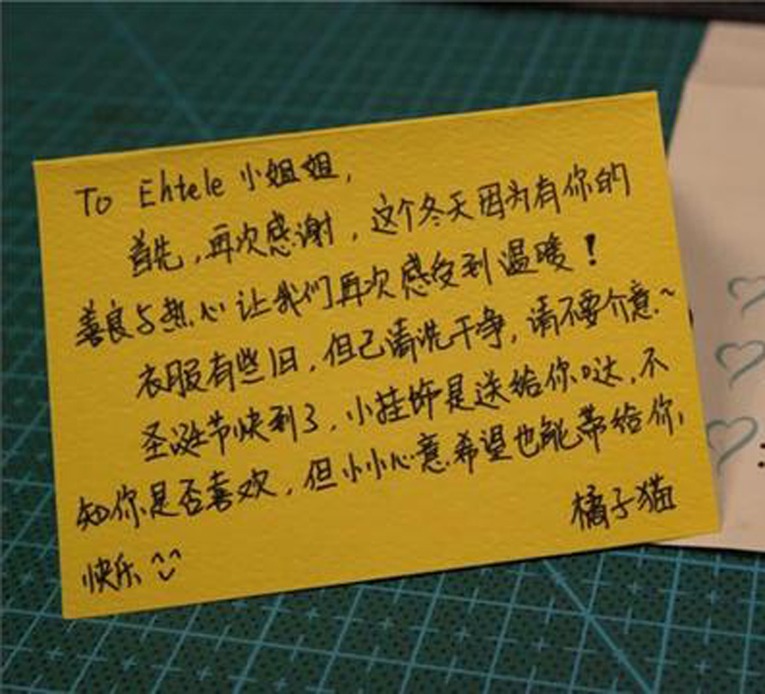 To Ehtele 小姐姐,
首先,再次感谢,这个冬天因为有你的
善良与热心让我们再次感受到温暖!
衣服有些旧,但已清洗干净,请不要介意~
圣诞节快到了,小挂饰是送给你哒,不
知你是否喜欢,但小小心意希望也能带给你,
快乐^^
橘子猫